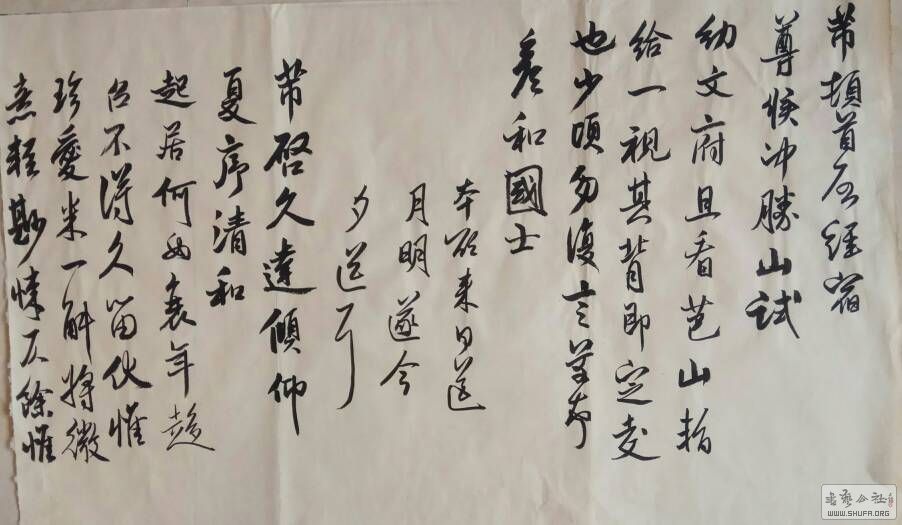 芾頓首启經宿
尊候冲勝山試
納文府且看芭山暫
給一視其背即定交
也少頃勿復言芾頓首
彥和國士
本欲来日送
月明遂今
夕送耳
芾啓久違傾仰
夏序清和
起居何如衰年趨
召不得久留伏惟
珍愛米一斛將微
意輕尠悚仄餘惟
書藝公社
WWW.SHUFA.ORG